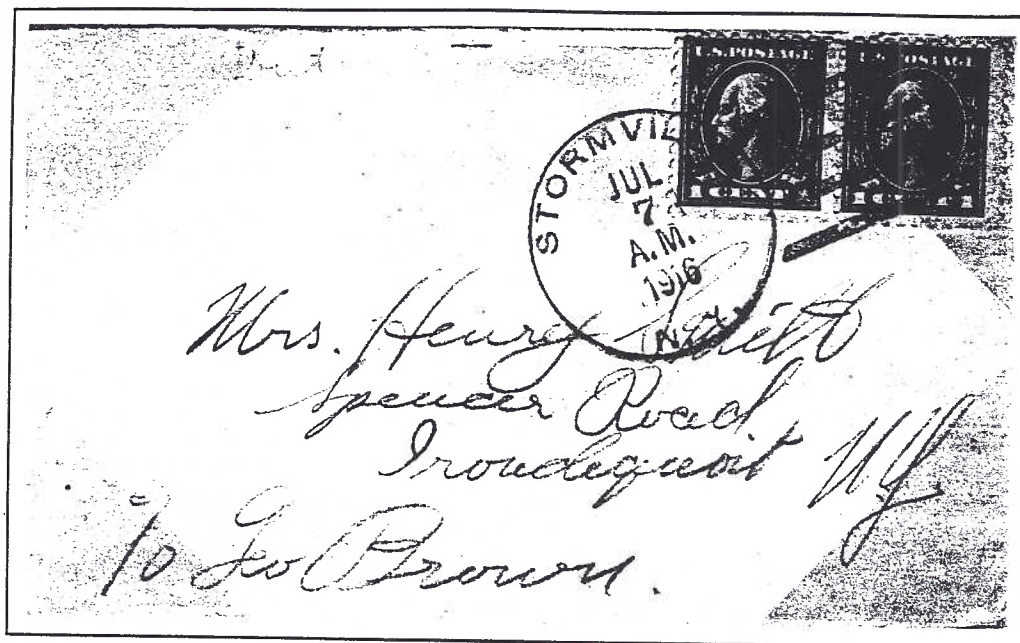 U.S. POSTAGE
U.S. POSTAGE
1 CENT 1
STORMVIL
JUL
7
A.M.
1916
N.Y.
Mrs. Henry
Spencer Road
Irondequoit N.Y.
c/o Geo Brown.